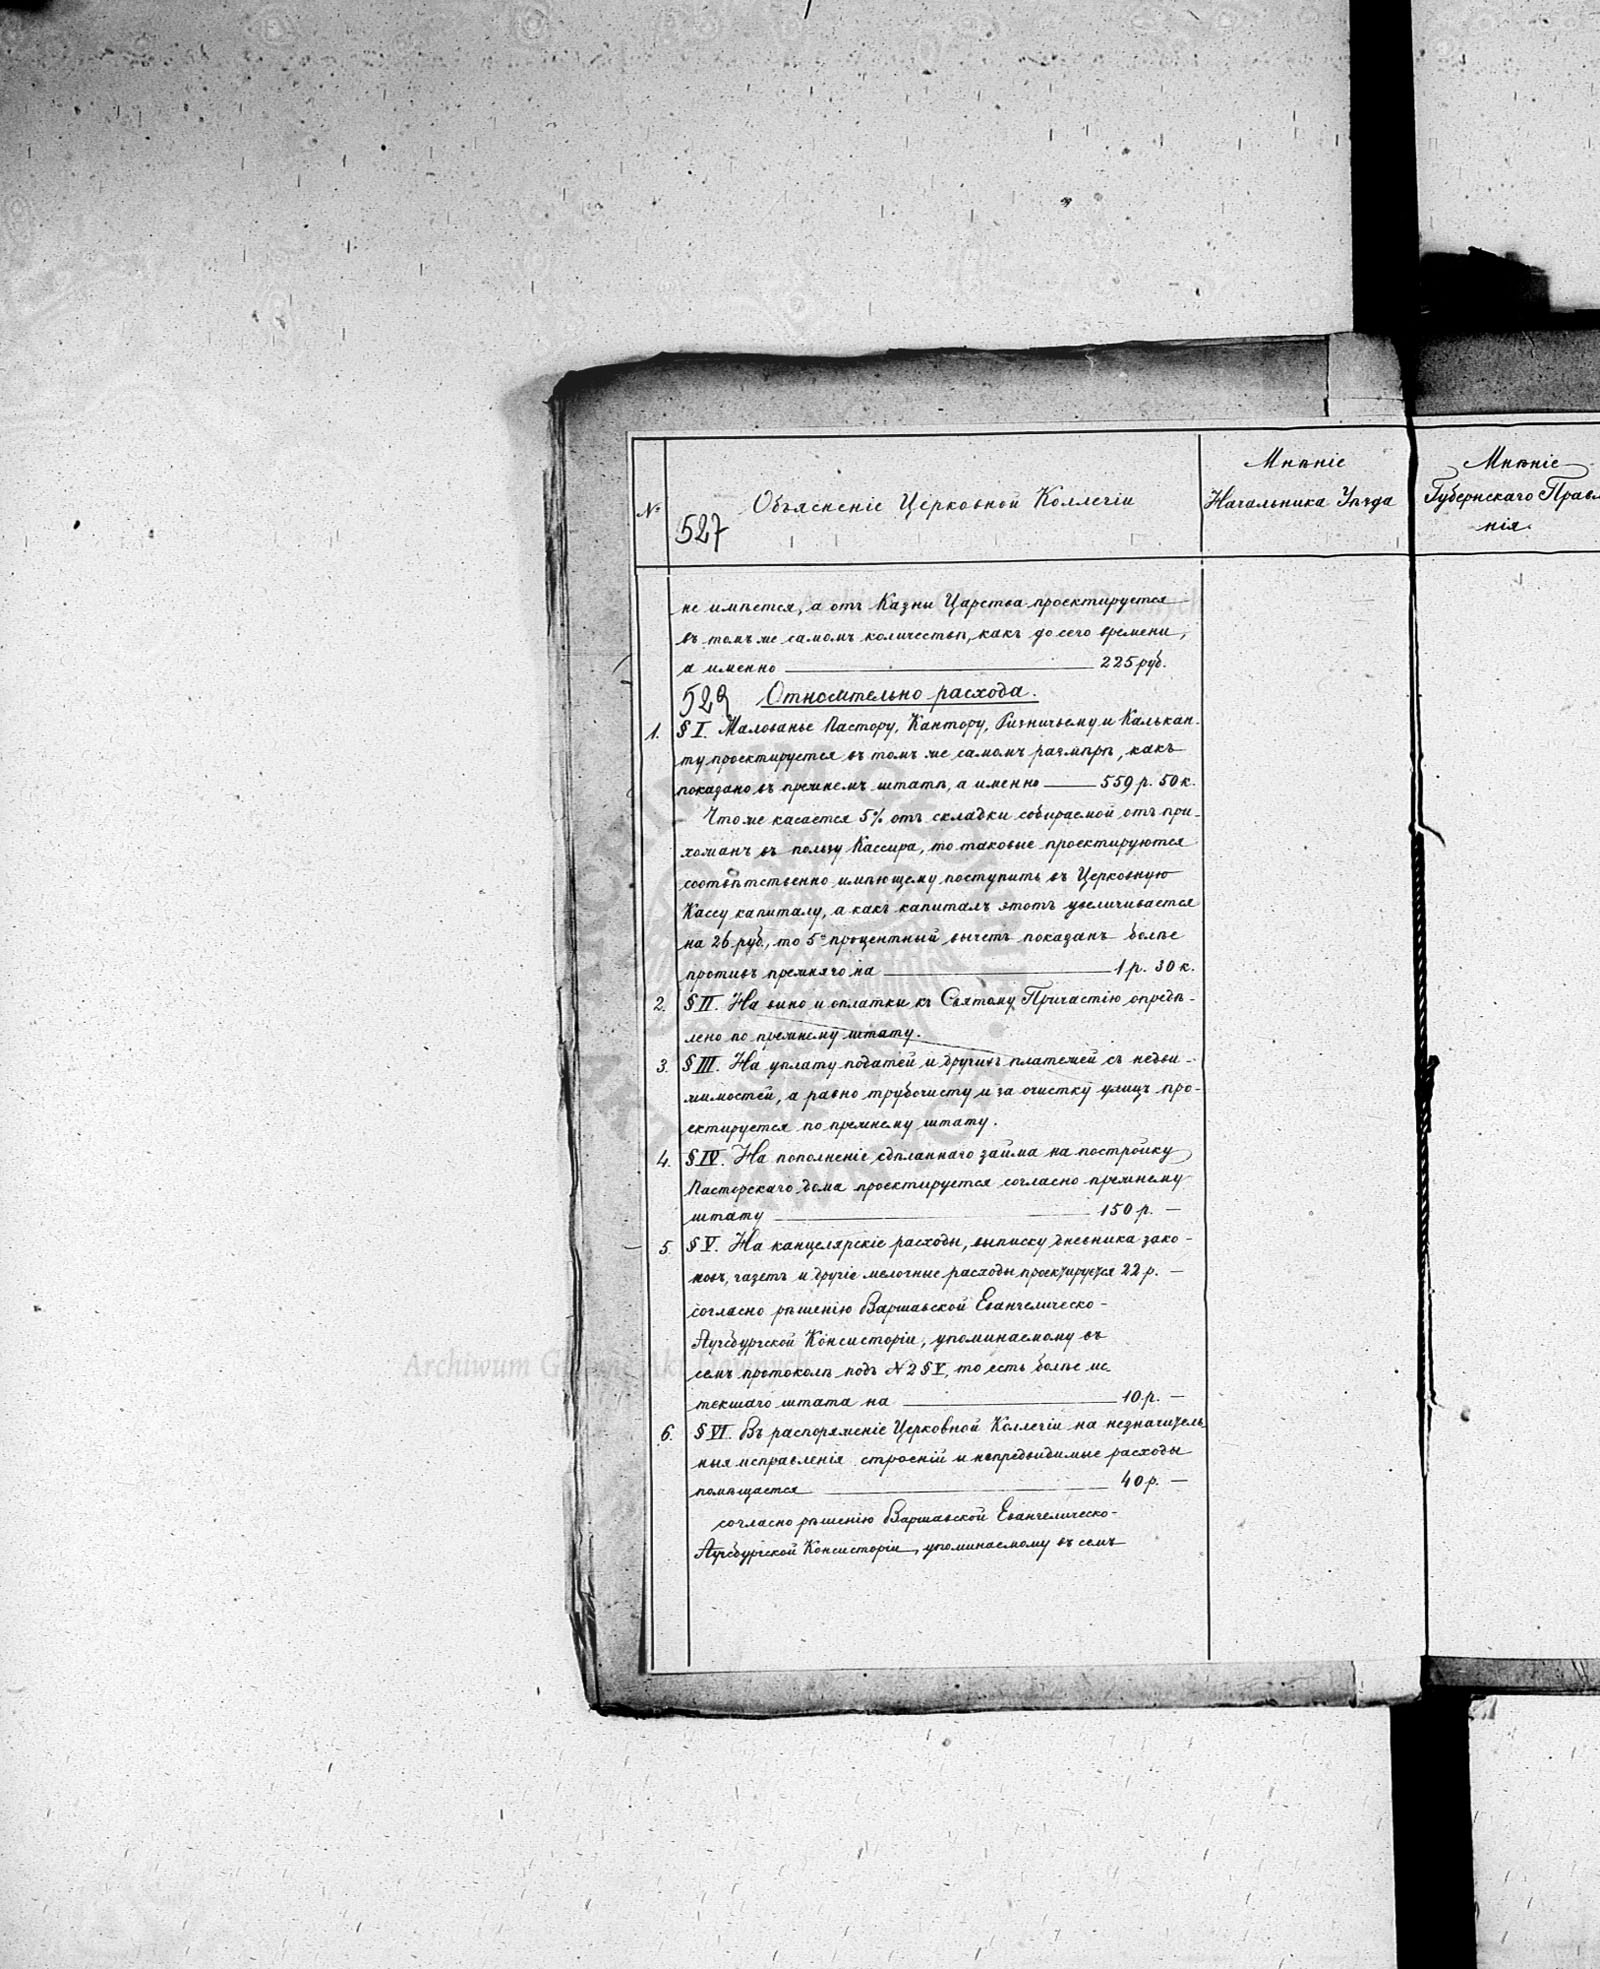 №
527
Объясненіе Церковной Коллегіи
Мнѣніе
Начальника Уѣзда
Мнѣніе
Губернскаго Правле
нія.
не имѣется, а отъ Казны Царства проектируется
въ томъ же самомъ количествѣ, какъ до сего времени,
а именно 225 руб.
529 Относительно расхода.
1. § I. Жалованье Пастору, Кантору, Ризничьему и Калькан-
ту проектируется въ томъ же самомъ размѣрѣ, какъ
показано въ прежнемъ штатѣ, а именно 559 р. 50 к.
Что же касается 5% отъ складки собираемой отъ при-
хожанъ въ пользу Кассира, то таковые проектируются
соотвѣтственно имѣющему поступить въ Церковную
Кассу капиталу, а какъ капиталъ этотъ увеличивается
на 26 руб., то 5º процентный вычетъ показанъ болѣе
противъ прежняго на 1 р. 30 к.
2. § II. На вино и оплатки къ Святому Причастію опредѣ-
лено по прежнему штату.
3. § III. На уплату податей и другихъ платежей съ недви-
жимостей, а равно трубочисту и за очистку улицъ про-
ектируется по прежнему штату.
4. § IV. На пополненіе сдѣланнаго займа на постройку
Пасторскаго дома проектируется согласно прежнему
штату 150 р. —
5. § V. На канцелярскіе расходы, выписку дневника зако-
новъ, газетъ и другіе мелочные расходы проектируется 22 р. —
согласно рѣшенію Варшавской Евангелическо-
Аугсбургской Консисторіи, упоминаемому въ
семъ протоколѣ подъ № 2 § V, то есть болѣе ис
текшаго штата на 10 р. —
6. § VI. Въ распоряженіе Церковной Коллегіи на незначитель
ныя исправленія строеній и непредвидимые расходы
помѣщается 40 р. —
согласно рѣшенію Варшавской Евангелическо-
Аугсбургской Консисторіи, упоминаемому въ семъ
Archiwum Główne Akt Dawnych